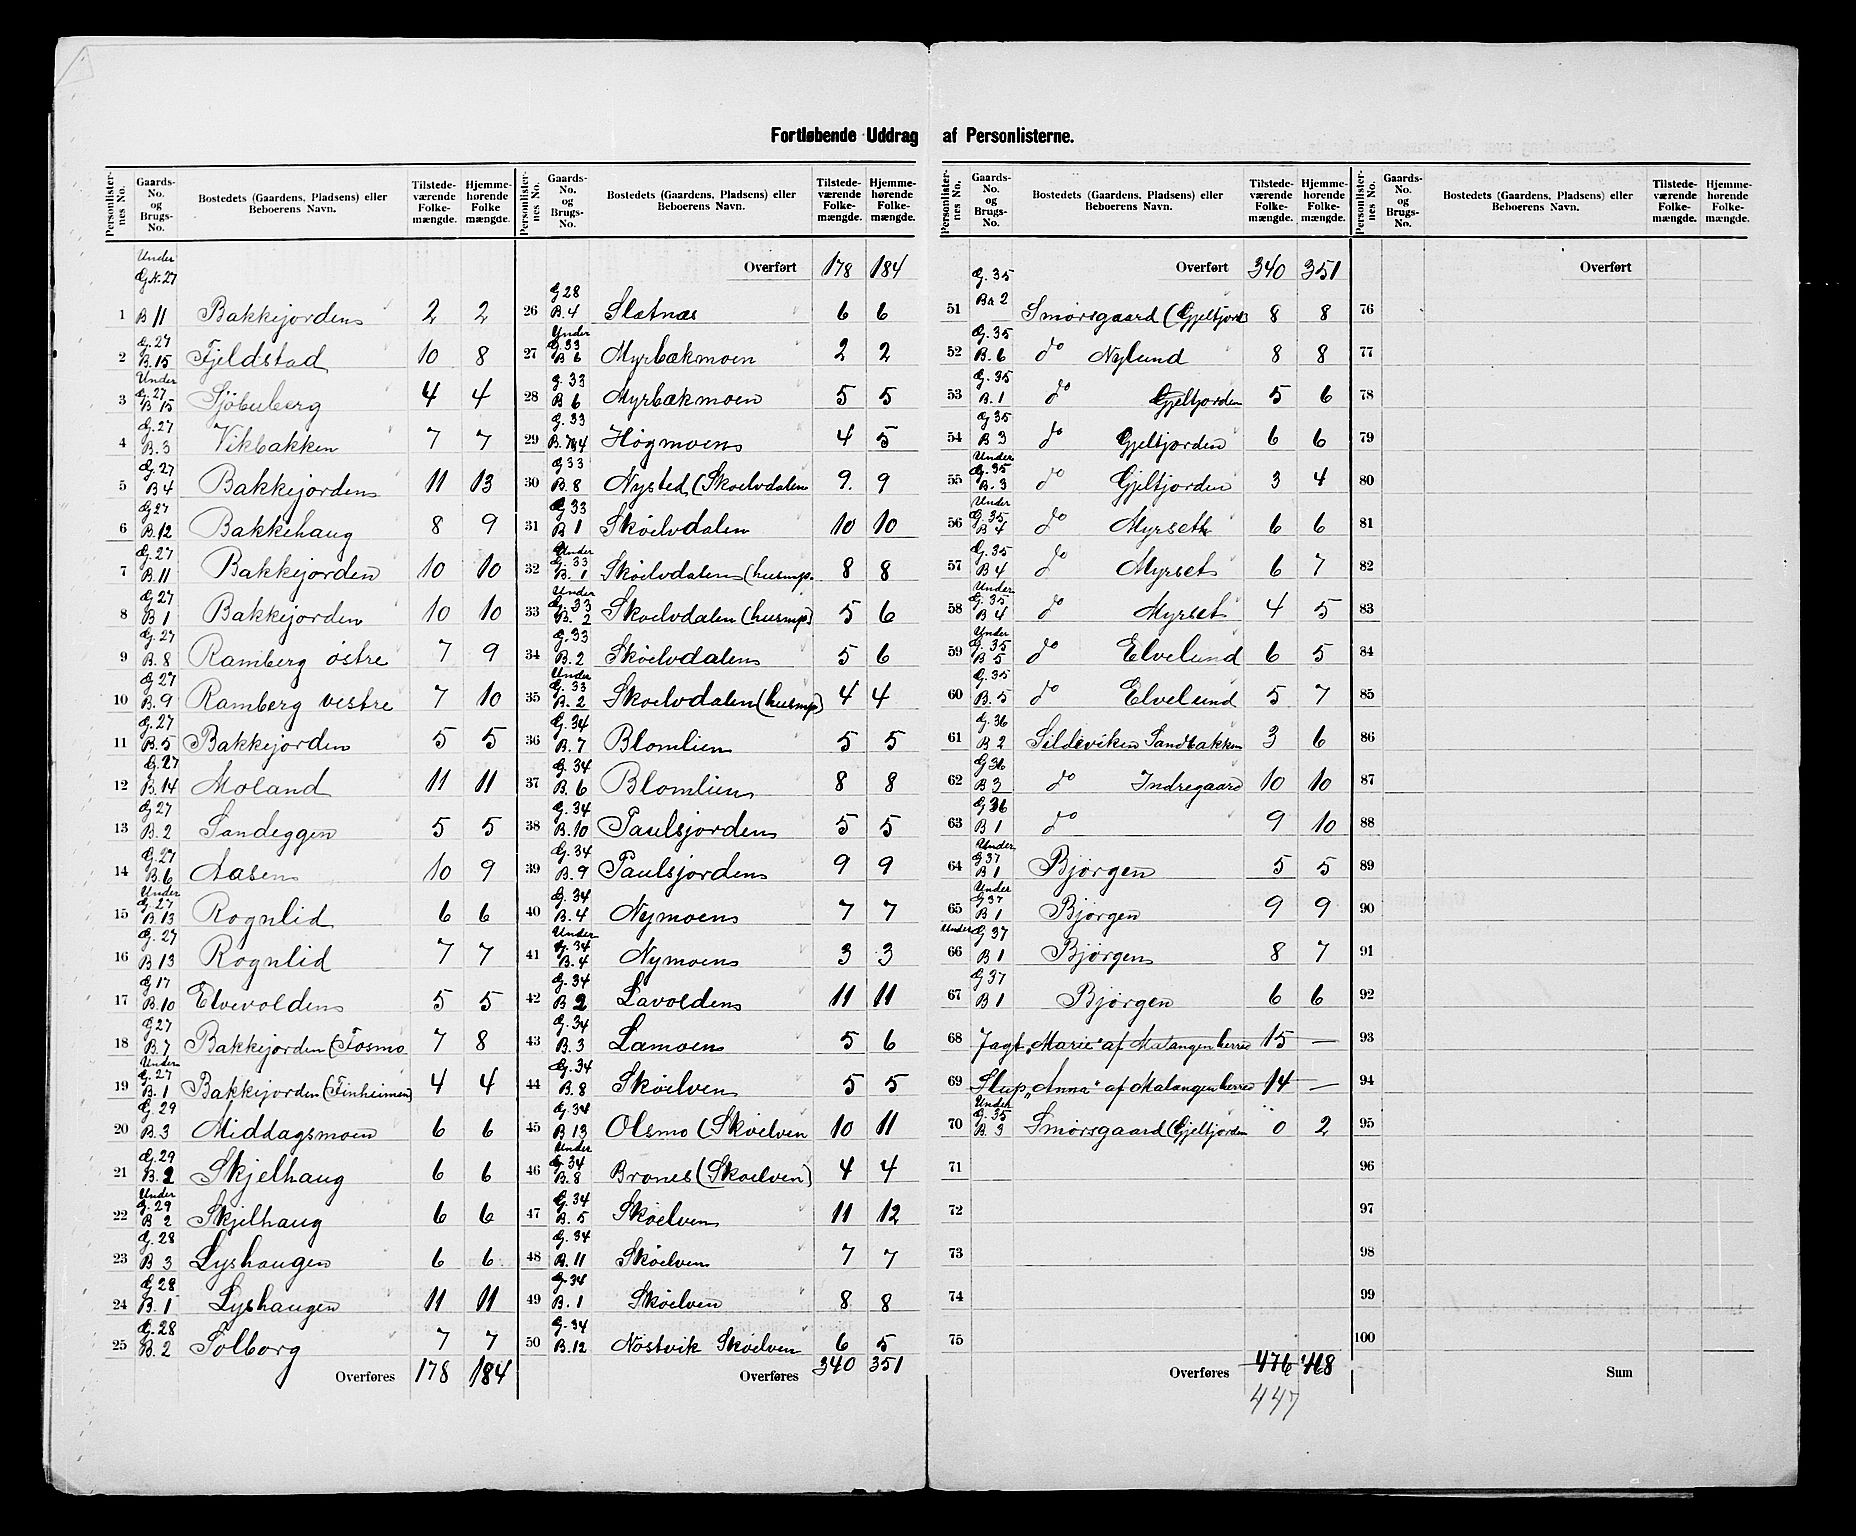 Fortløbende Uddrag af Personlisterne.
Personlisternes No. | Gaards-No. og Brugs-No. | Bostedets (Gaardens, Pladsens) eller Beboerens Navn. | Tilstedeværende Folkemængde. | Hjemmehørende Folkemængde.
1 Under G.N. 27 B 11 Bakkejorden 2 2
2 G. 27 B. 15 Fjeldstad 10 8
3 Under G. 27 B 15 Sjöbuberg 4 4
4 G. 27 B. 3 Vikbakken 7 7
5 G. 27 B 4 Bakkejorden 11 13
6 G 27 B. 12 Bakkehaug 8 9
7 G. 27 B. 11 Bakkejorden 10 10
8 G. 27 B 1 Bakkejorden 10 10
9 G. 27 B. 8 Ramberg østre 7 9
10 G. 27 B. 9 Ramberg vestre 7 10
11 G. 27 B. 5 Bakkejorden 5 5
12 G. 27 B. 14 Moland 11 11
13 G 27 B. 2 Sandeggen 5 5
14 G. 27 B. 6 Aasen 10 9
15 Under G. 27 B. 13 Rognlid 6 6
16 G. 27 B 13 Rognlid 7 7
17 G 17 B. 10 Elvevolden 5 5
18 G 27 B. 7 Bakkejorden (Fosmo 7 8
19 Under G. 27 B. 1 Bakkejorden (Finheimen) 4 4
20 G. 29 B. 3 Middagsmoen 6 6
21 G. 29 B. 2 Skjelhaug 6 6
22 Under G. 29 B 2 Skjelhaug 6 6
23 G. 28 B 3 Lyshaugen 6 6
24 G 28 B. 1 Lyshaugen 11 11
25 G. 28 B. 2 Solborg 7 7
Overføres 178 184
Personlisternes No. | Gaards-No. og Brugs-No. | Bostedets (Gaardens, Pladsens) eller Beboerens Navn. | Tilstedeværende Folkemængde. | Hjemmehørende Folkemængde.
Overført 178 184
26 G 28 B. 4 Slætnæs 6 6
27 Under G. 33 B 6 Myrbækmoen 2 2
28 G. 33 B 6 Myrbækmoen 5 5
29 G. 33 Høgmoen 4 5
30 G 33 B. 8 Nysted (Skøelvdalen 9. 9
31 G 33 B 1 Skøelvdalen 10 10
32 Under G. 33 B. 1 Skøelvdalen (husmp. 8 8
33 Under G. 33 B. 2 Skøelvdalen (husmp) 5 6
34 G. 33 B. 2 Skøelvdalen 5 6
35 Under G. 33 B. 2 Skøelvdalen (husmp) 4 4
36 G. 34 B. 7 Blomlien 5 5
37 G. 34 B. 6 Blomlien 8 8
38 G. 34 B. 10 Paulsjorden 5 5
39 G. 34 B. 9 Paulsjorden 9 9
40 G. 34 B. 4 Nymoen 7 7
41 Under G. 34 B. 4 Nymoen 3 3
42 G. 34 B 2 Lavolden 11 11
43 G. 34 B. 3 Lamoen 5 6
44 G. 34 B. 8 Skøelven 5 5
45 G. 34 B. 13 Olsmo (Skøelven 10 11
46 Under G. 34 B. 8 Brones (Skoelven) 4 4
47 G. 34 B. 5 Skøelven 11 12
48 G. 34 B. 11 Skøelven 7 7
49 G. 34 B. 1 Skøelven 8 8
50 G. 34 B. 12 Nøstvik Skøelven 6 5
Overføres 340 351
Personlisternes No. | Gaards-No. og Brugs-No. | Bostedets (Gaardens, Pladsens) eller Beboerens Navn. | Tilstedeværende Folkemængde. | Hjemmehørende Folkemængde.
Overført 340 351
51 G. 35 Bn 2 Smørsgaard (Gjeltjord 8 8
52 G. 35 B. 6 do Nylund 8 8
53 G. 35 B. 1 do Gjeltjorden 5 6
54 G 35 B 3 do Gjeltjorden 6 6
55 Under G. 35 B. 3 do Gjeltjorden 3 4
56 Under G. 35 B 4 do Myrseth 6 6
57 G. 35 B 4 do Myrset 6 7
58 Under G. 35 B 4 do Myrset 4 5
59 Under G. 35 B 5 do Elvelund 6 5
60 G. 35 B. 5 do Elvelund 5 7
61 G. 36 B 2 Sildeviken Sandbakken 3 6
62 G 36 B 3 do Indregaard 10 10
63 G 36 B 1 do 9 10
64 Under G 37 B 1 Bjørgen 5 5
65 Under G 37 B 1 Bjørgen 9 9
66 Under G 37 B 1 Bjørgen 8 7
67 G 37 B 1 Bjørgen 6 6
68 Jagt "Marie" af Malangen herred 15 —
69 Slup "Anna" af Malangen herred 14 —
70 Under G. 35 B. 3 Smørsgaard (Gjeltjorden 0 2
71
72
73
74
75
Overføres 476 468
447
Personlisternes No. | Gaards-No. og Brugs-No. | Bostedets (Gaardens, Pladsens) eller Beboerens Navn. | Tilstedeværende Folkemængde. | Hjemmehørende Folkemængde.
Overført
76
77
78
79
80
81
82
83
84
85
86
87
88
89
90
91
92
93
94
95
96
97
98
99
100
Sum